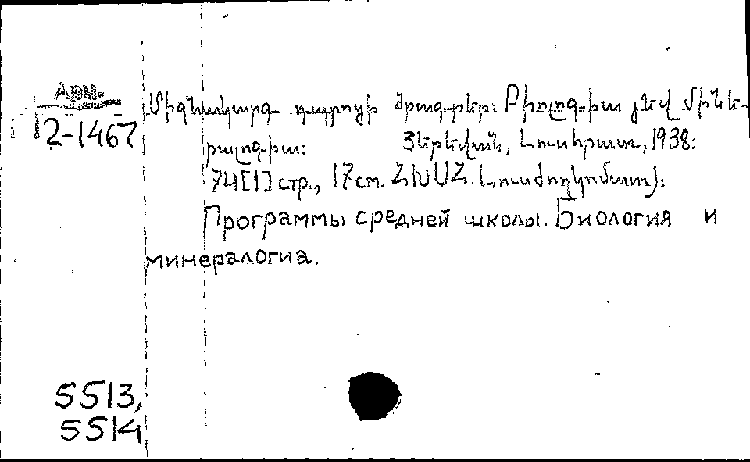 Арм.
12-1467
Միջնակարգ դպրոցի ծրագրեր: Բիոլոգիա յեվ միներ-
րալոգիա: Յերեվան, Լուսհրատ, 1938:
74[1] стр., 17 см. ՀԽՍՀ Լուսժողկոմատ):
Программы средней школы. Биология и
минералогиа.
5513,
5514